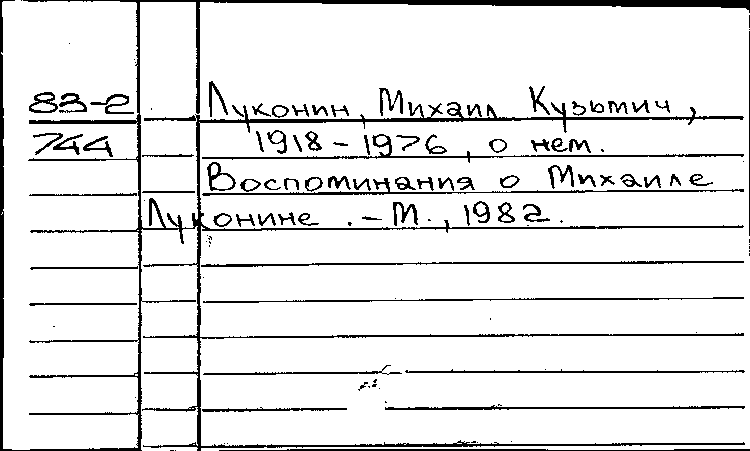 83-2 Луконин, Михаил Кузьмич,
744 1918-1976, о нем.
Воспоминания о Михаиле
Луконине.-М., 1982.